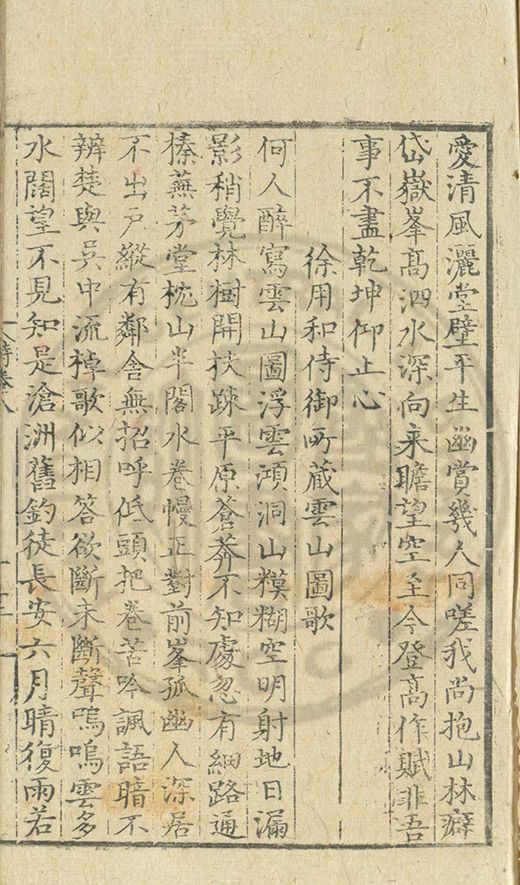 愛清風灑堂壁平生幽賞幾人同嗟我尚抱山林癖
岱嶽峯髙泗水深向来瞻望空至今登髙作賦非吾
事不盡乾坤仰止心
徐用和侍御所蔵雲山圖歌
何人醉寫雲山圖浮雲澒洞山糢糊空明射地日漏
影稍覺林樹開扶踈平原蒼莽不知處忽有細路通
榛蕪茅堂枕山半閣水卷幔正對前峯孤幽人深居
不出戸縱有鄰舍無招呼低頭把卷苦吟諷語暗不
辨楚與吳中流棹歌似相答欲斷未斷聲嗚嗚雲多
水闊望不見知是滄洲舊釣徒長安六月晴復雨若